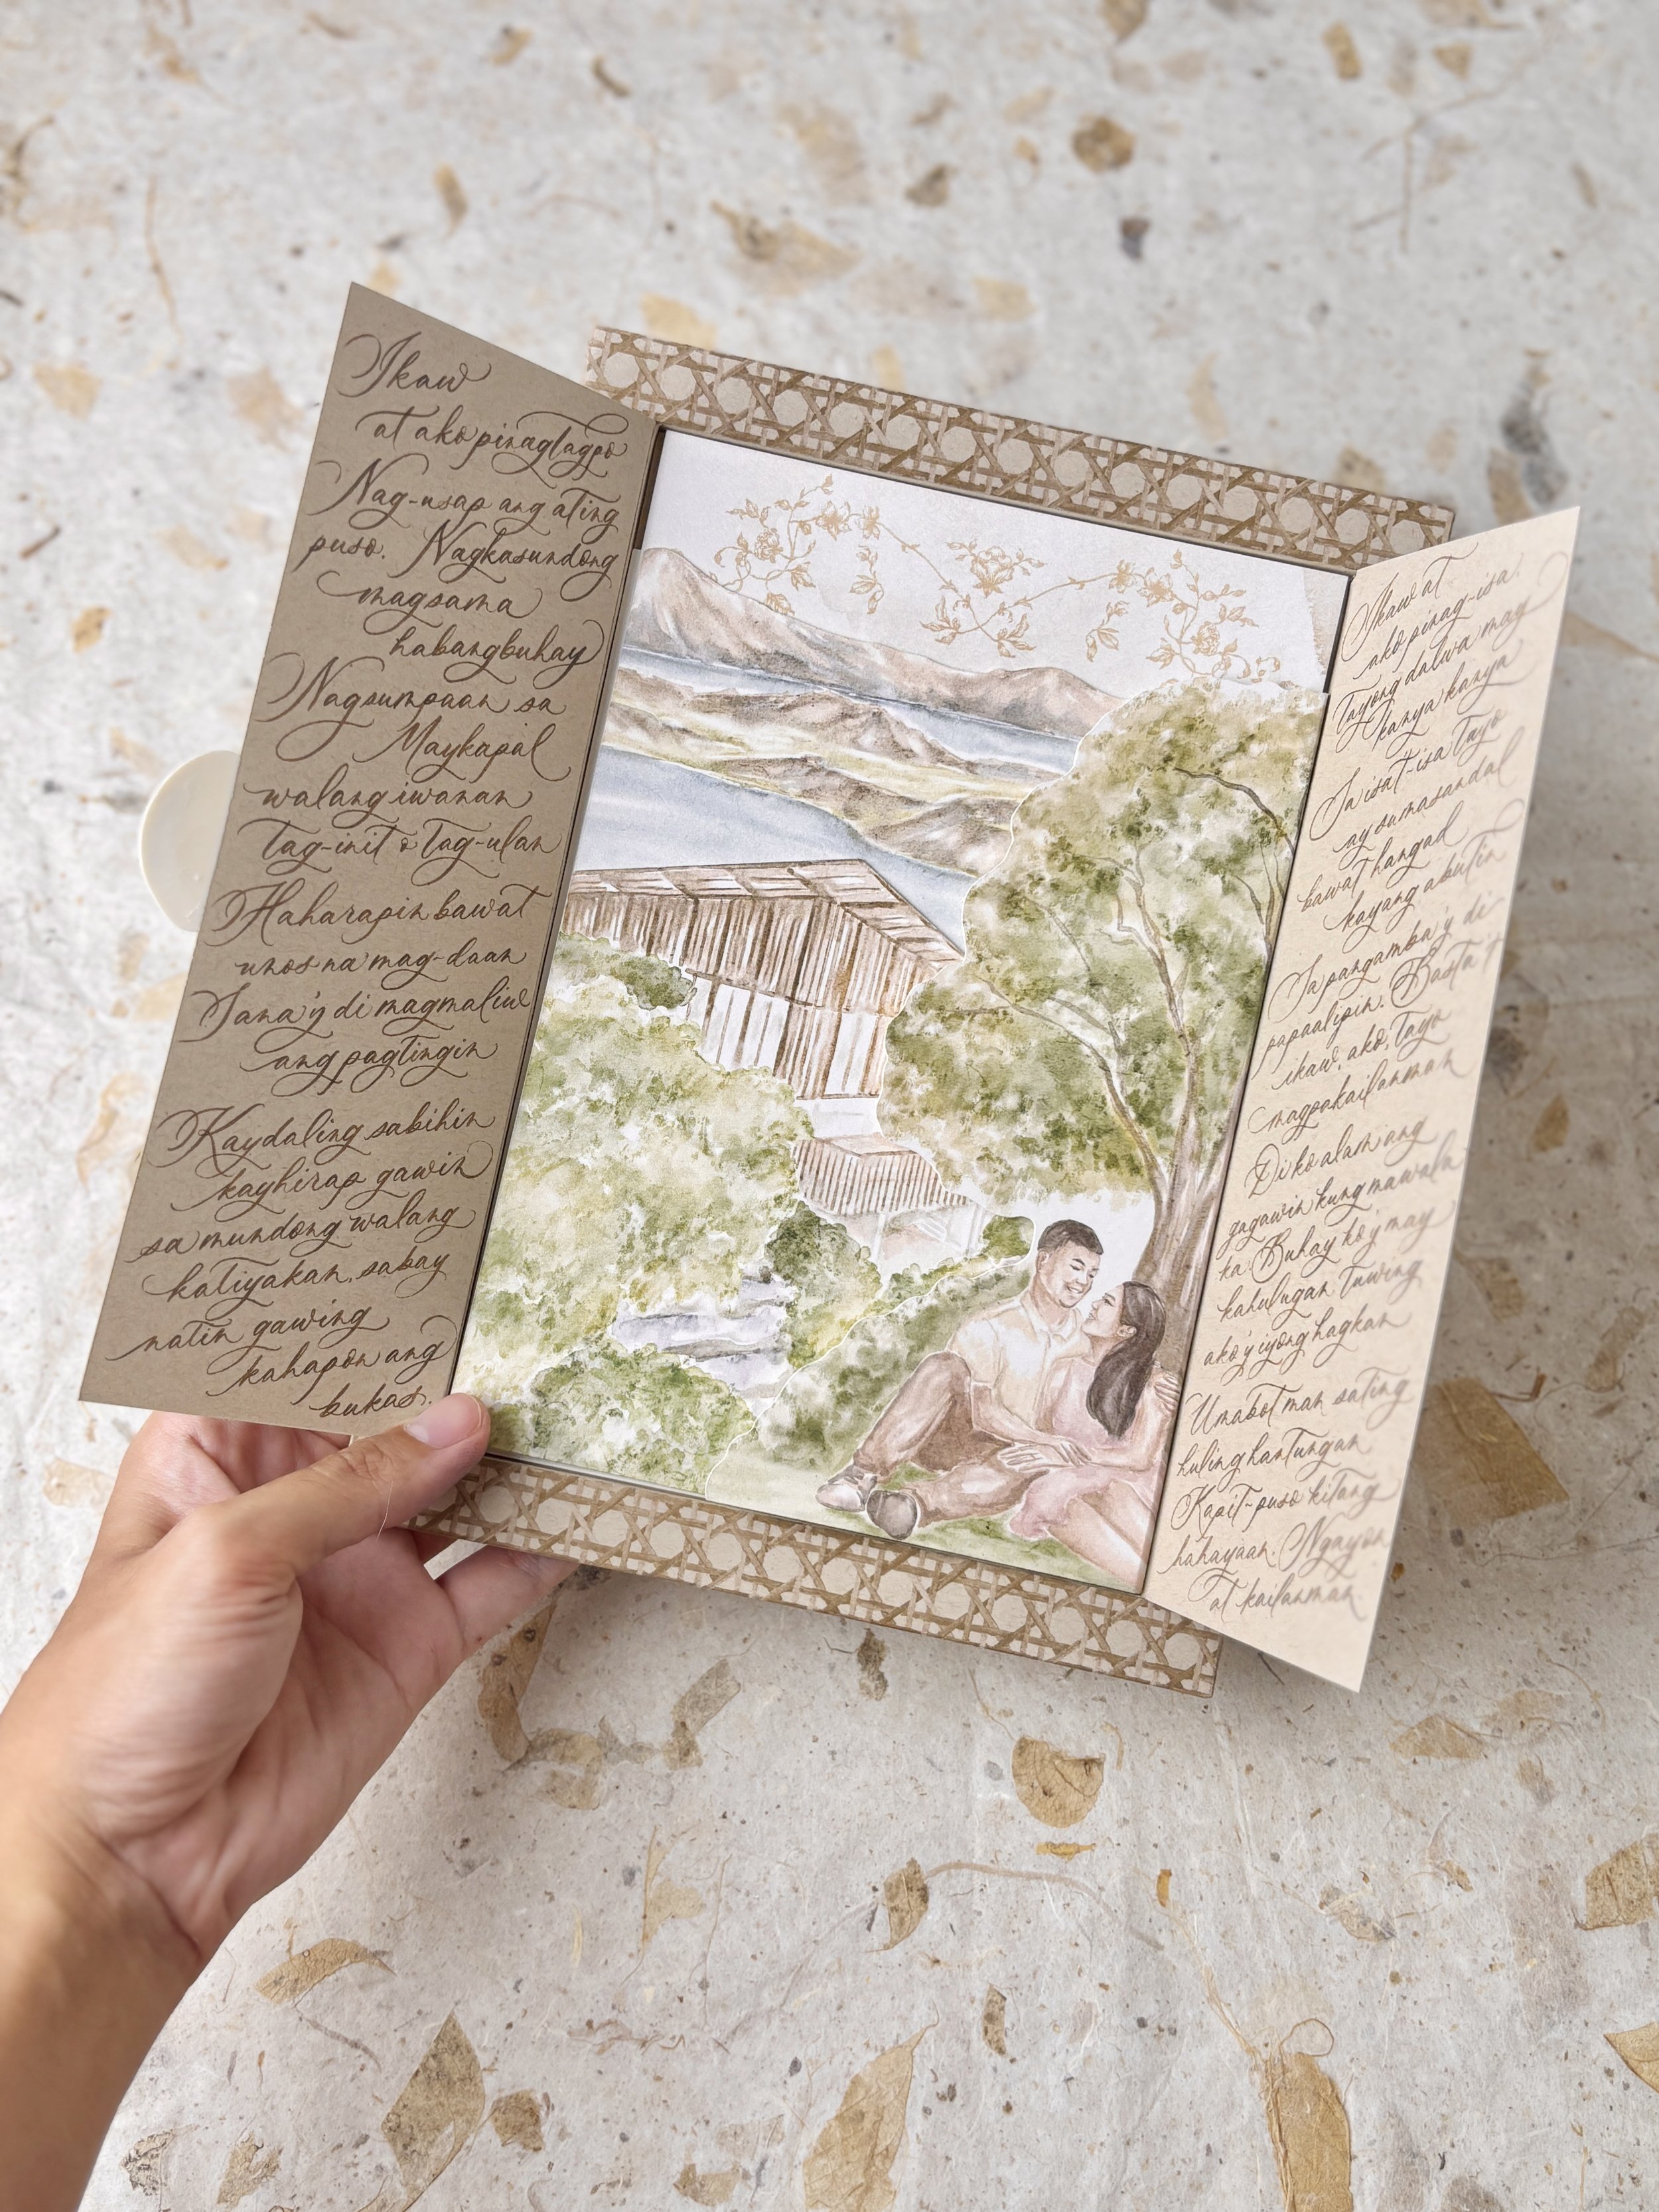 Ikaw
at ako pinagtagpo
Nag-usap ang ating
puso. Nagkasundong
magsama
habangbuhay
Nagsumpaan sa
Maykapal
walang iwanan
Tag-init o Tag-ulan
Haharapin bawat
unos na mag-daan
Sana'y di magmaliw
ang pagtingin
Kaydaling sabihin
kayhirap gawin
sa mundong walang
katiyakan, sabay
natin gawing
kahapon ang
bukas.
Ikaw at
ako pinag-isa.
Tayong dalwa may
kanya kanya
Sa isat-isa Tayo
ay sumasandal
bawat hangad
kayang abutin
Sa pangamba'y di
papaalipin. Basta't
ikaw, ako, Tayo
magpakailanman
Di ko alam ang
gagawin kung mawala
ka Buhay ko'y may
kahulugan Tuwing
ako'y iyong hagkan
Umabot man sating
huling hantungan
Kapit-puso kitang
hahayaan. Ngayon
at kailanman.